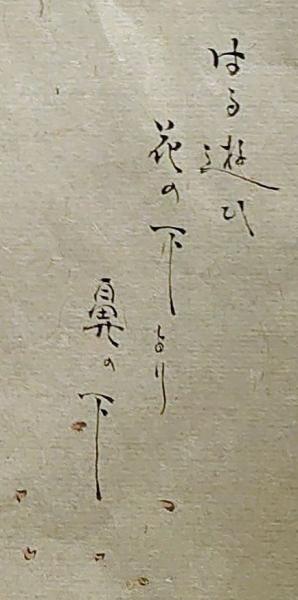 はる遊び
花の下より
鼻の下